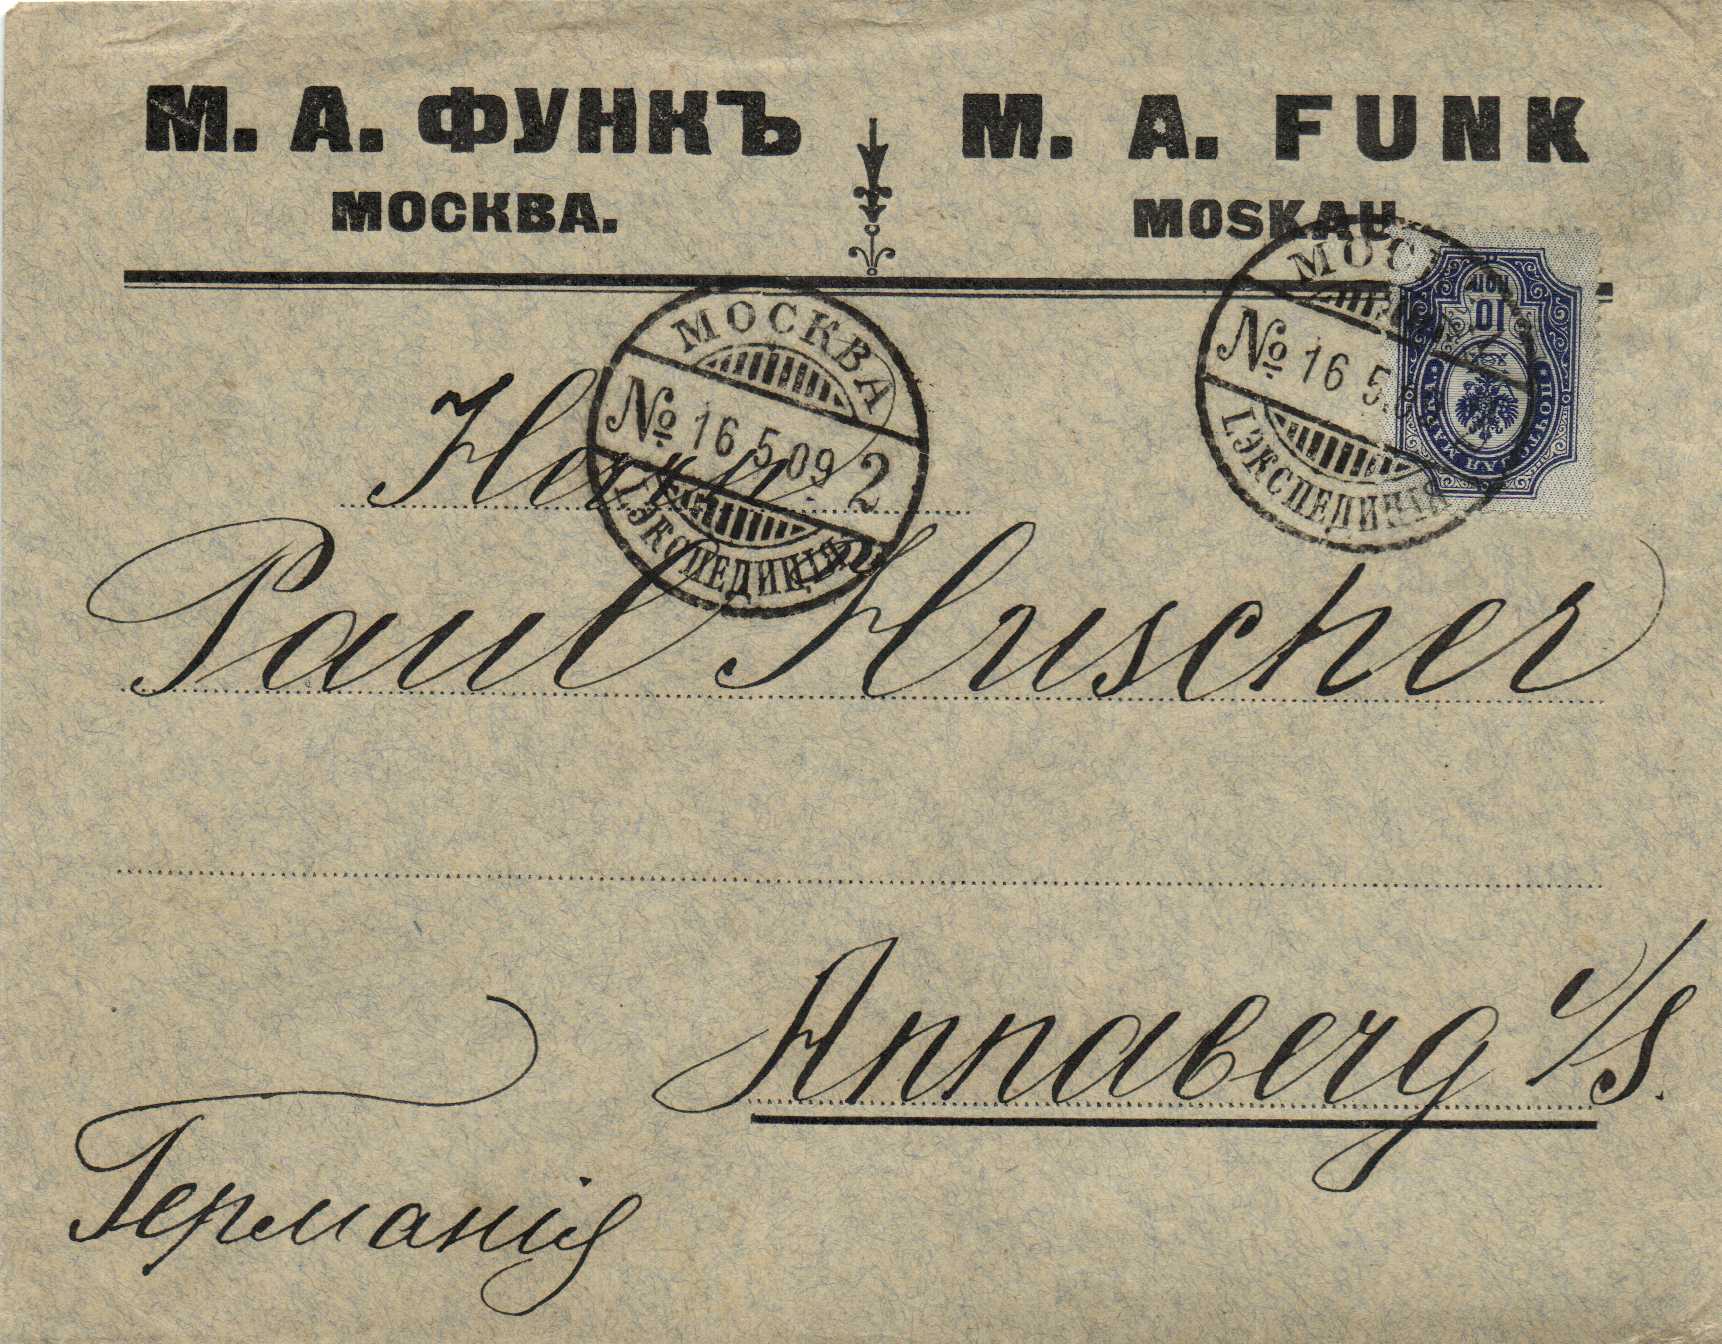 М. А. ФУНКЪ
МОСКВА.
M. A. FUNK
MOSKAU
МОСКВА
№ 16 5 09 2
1.ЭКСПЕДИЦІЯ
МОСК
№ 16 5.
1.ЭКСПЕДИЦІЯ
10
КОП
ПОЧТОВАЯ МАРКА
Herrn
Paul Huscher
Annaberg i/S.
Германія